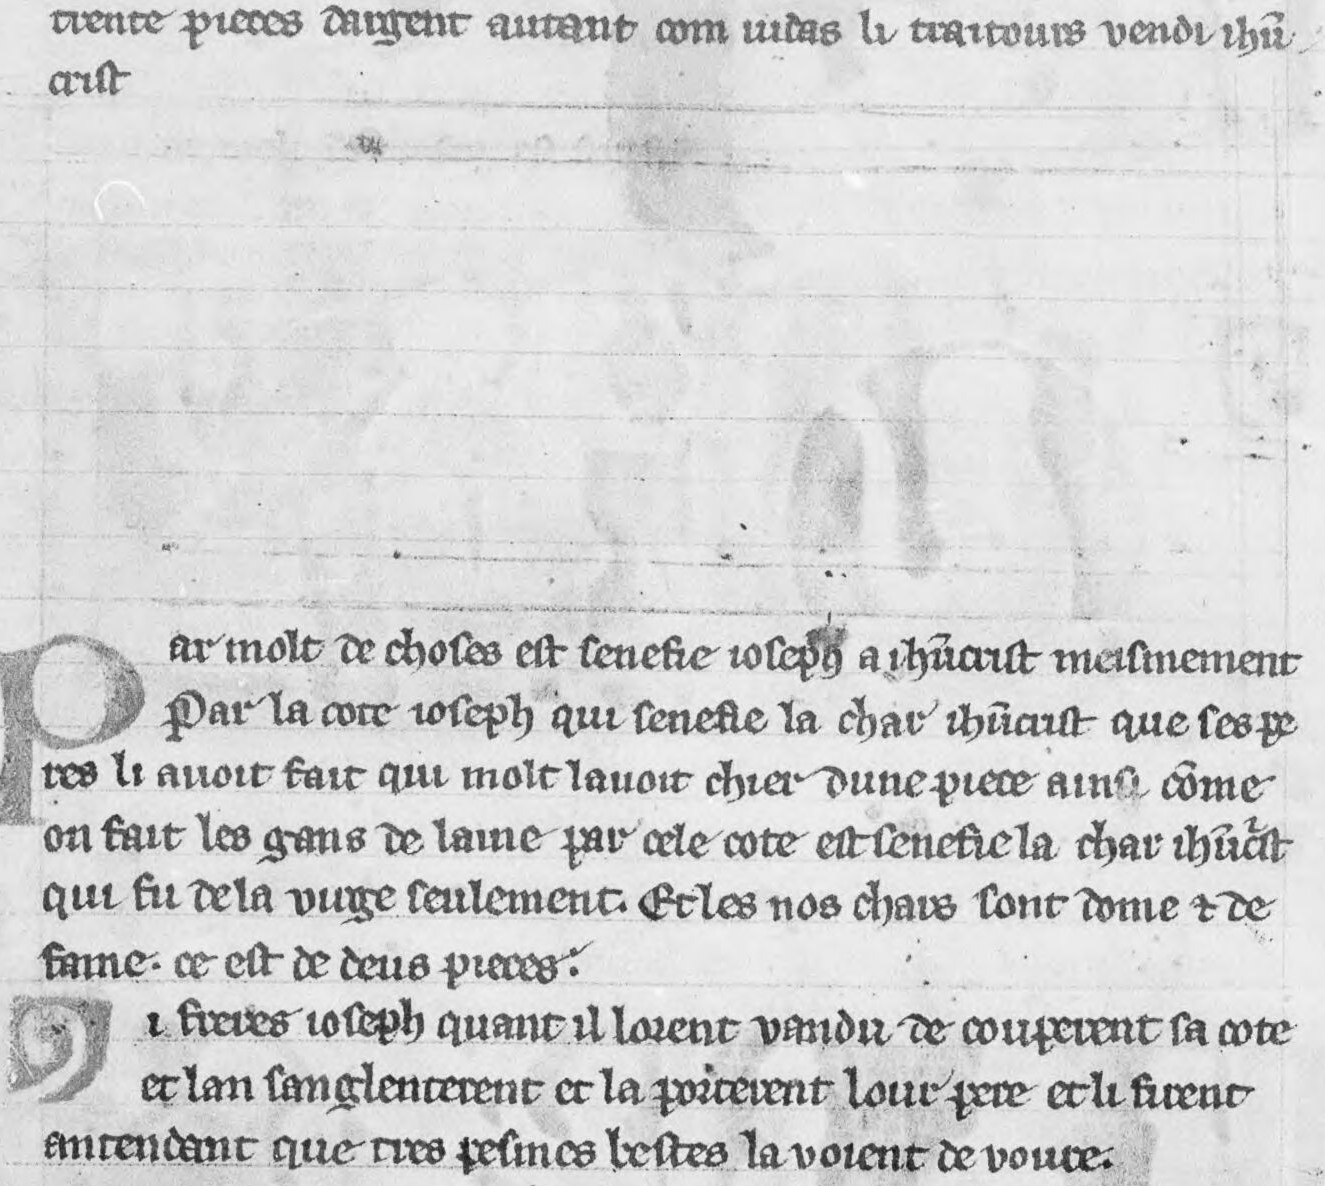 trente pieces dargent autant com iudas li traitours vendi ihū
crist
Par molt de choses est senefie ioseph a ihūcrist meismement
Par la cote ioseph qui senefie la char ihūcrist que ses pe
res li auoit fait qui molt lauoit chier dune piece ainsi cōme
on fait les gans de laine par cele cote est senefie la char ihūcst
qui fu de la uirge seulement. Et les nos chars sont dome ⁊ de
fame. ce est de deus pieces.
i freres ioseph quant il lorent vandu de couperent sa cote
et lan sanglenterent et la porterent lour pere et li firent
antendant que tres pesmes bestes la voient de vouree.